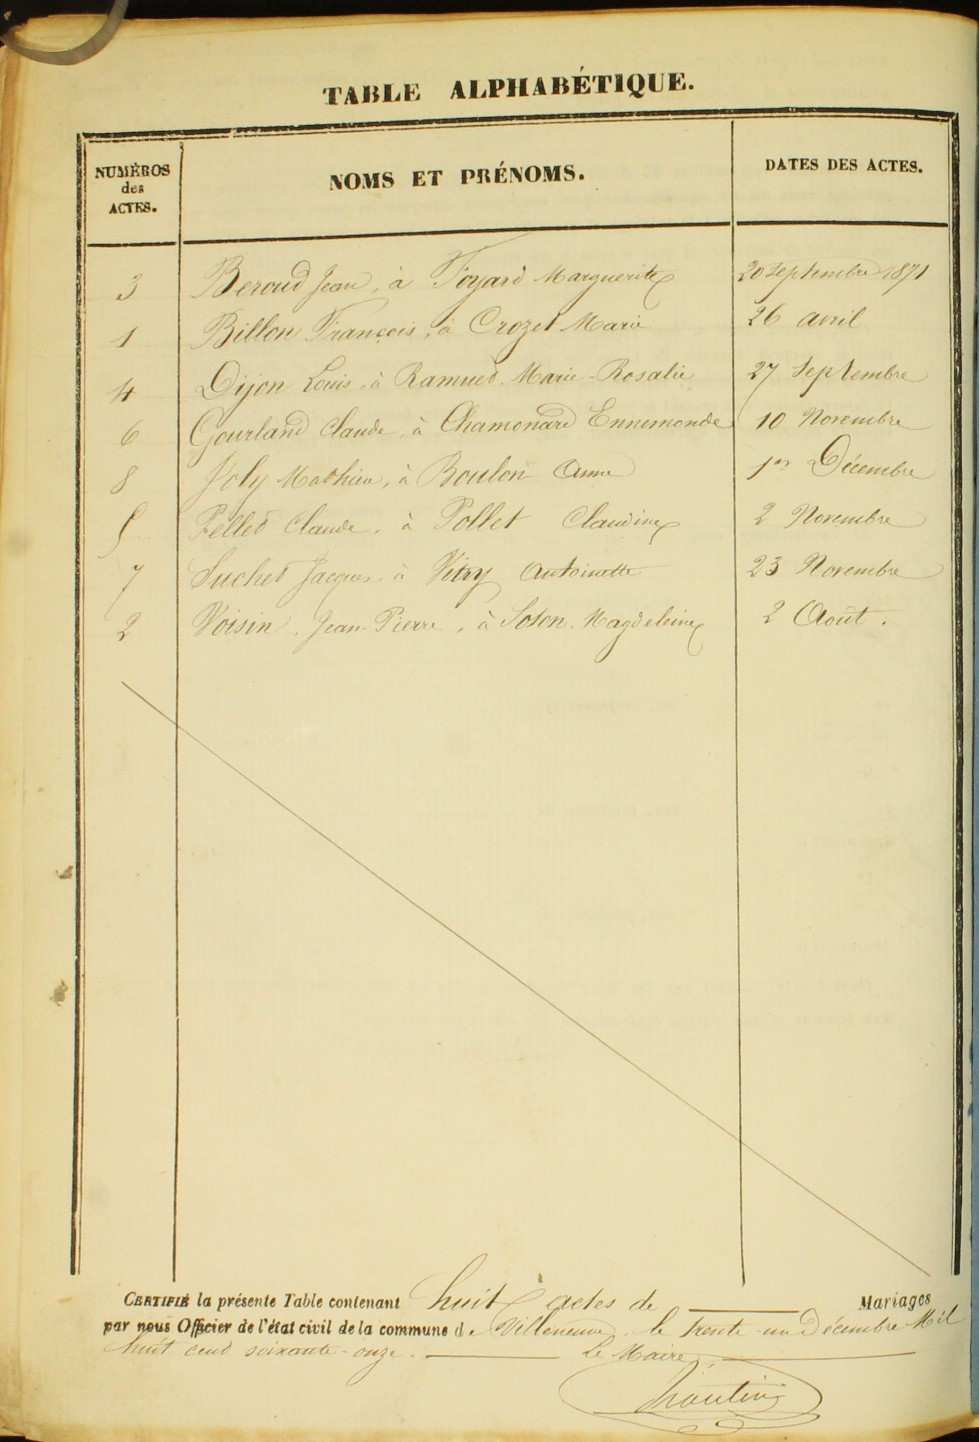 TABLE ALPHABÉTIQUE.
NUMÉROS
des
ACTES.
NOMS ET PRÉNOMS.
DATES DES ACTES.
3 Beroud Jean, à Foyard Marguerite 20 Septembre 1871
1 Billon François, à Crozet Marie 26 avril
4 Dijon Louis à Ramued Marie-Rosalie 27 Septembre
6 Gourland Claude, à Chamonard Ennemonde 10 Novembre
8 Joly Mathieu, à Boulon Anne 1er Décembre
5 Pelled Claude, à Pollet Claudine 2 Novembre
7 Suchet Jacques à Vitry Antoinette 23 Novembre
2 Voisin Jean-Pierre, à Soton Magdeleine 2 Août.
CERTIFIÉ la présente Table contenant huit actes de Mariages
par nous Officier de l'état civil de la commune de Villeneuve, le trente-un Décembre Mil
huit cent soixante-onze. Le Maire,